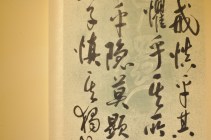 戒慎乎其
懼乎其所
乎隐莫顯
子慎其獨